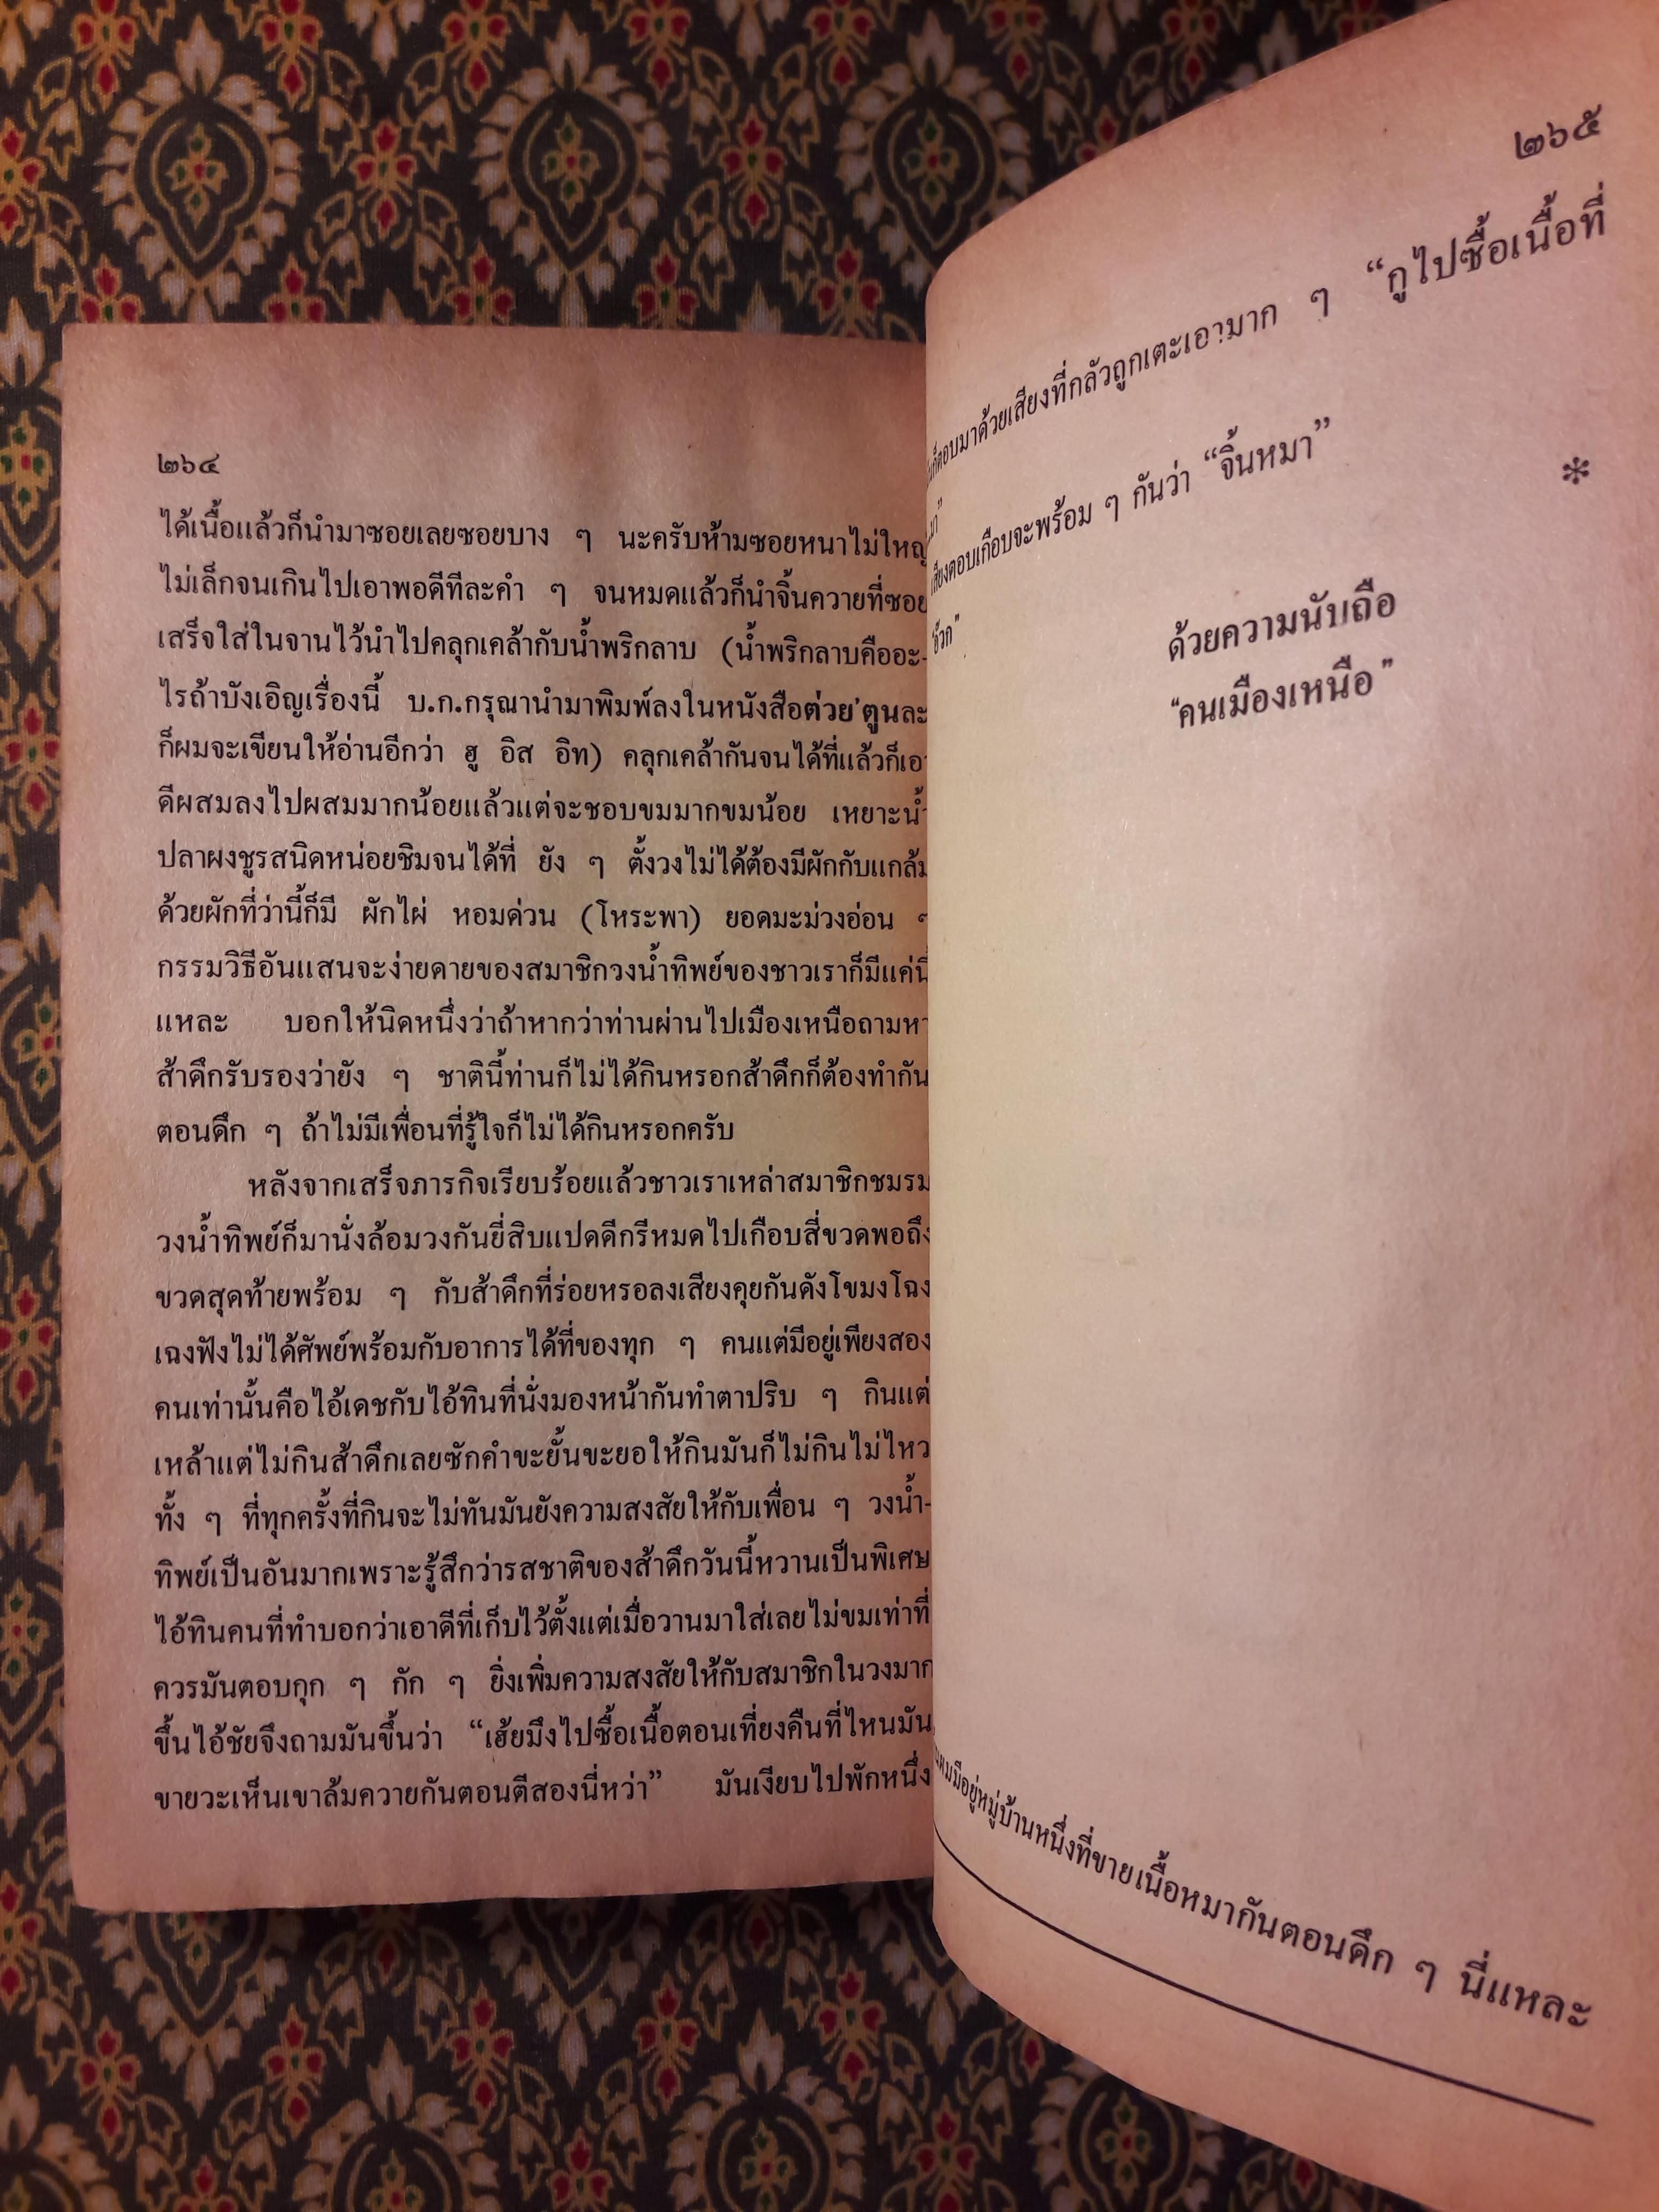 ๒๖๔
ได้เนื้อแล้วก็นำมาซอยเลยซอยบาง ๆ นะครับห้ามซอยหนาไม่ใหญ่
ไม่เล็กจนเกินไปเอาพอดีทีละคำ ๆ จนหมดแล้วก็นำจิ้นควายที่ซอย
เสร็จใส่ในจานไว้นำไปคลุกเคล้ากับน้ำพริกลาบ (น้ำพริกลาบคืออะ-
ไรถ้าบังเอิญเรื่องนี้ บ.ก.กรุณานำมาพิมพ์ลงในหนังสือต่วย'ตูนละ
ก็ผมจะเขียนให้อ่านอีกว่า ฮู อิส อิท) คลุกเคล้ากันจนได้ที่แล้วก็เอา
ดีผสมลงไปผสมมากน้อยแล้วแต่จะชอบขมมากขมน้อย เหยาะน้ำ
ปลาผงชูรสนิดหน่อยชิมจนได้ที่ ยัง ๆ ตั้งวงไม่ได้ต้องมีผักกับแกล้ม
ด้วยผักที่ว่านี้ก็มี ผักไผ่ หอมค่วน (โหระพา) ยอดมะม่วงอ่อน ๆ
กรรมวิธีอันแสนจะง่ายดายของสมาชิกวงน้ำทิพย์ของชาวเราก็มีแค่นี้
แหละ บอกให้นิดหนึ่งว่าถ้าหากว่าท่านผ่านไปเมืองเหนือถามหา
ส้าดึกรับรองว่ายัง ๆ ชาตินี้ท่านก็ไม่ได้กินหรอกส้าดึกก็ต้องทำกัน
ตอนดึก ๆ ถ้าไม่มีเพื่อนที่รู้ใจก็ไม่ได้กินหรอกครับ
หลังจากเสร็จภารกิจเรียบร้อยแล้วชาวเราเหล่าสมาชิกชมรม
วงน้ำทิพย์ก็มานั่งล้อมวงกันยี่สิบแปดดีกรีหมดไปเกือบสี่ขวดพอถึง
ขวดสุดท้ายพร้อม ๆ กับส้าดึกที่ร่อยหรอลงเสียงคุยกันดังโขมงโฉง
เฉงฟังไม่ได้ศัพย์พร้อมกับอาการได้ที่ของทุก ๆ คนแต่มีอยู่เพียงสอง
คนเท่านั้นคือไอ้เดชกับไอ้ทินที่นั่งมองหน้ากันทำตาปริบ ๆ กินแต่
เหล้าแต่ไม่กินส้าดึกเลยซักคำขะยั้นขะยอให้กินมันก็ไม่กินไม่ไหว
ทั้ง ๆ ที่ทุกครั้งที่กินจะไม่ทันมันยังความสงสัยให้กับเพื่อน ๆ วงน้ำ-
ทิพย์เป็นอันมากเพราะรู้สึกว่ารสชาติของส้าดึกวันนี้หวานเป็นพิเศษ
ไอ้ทินคนที่ทำบอกว่าเอาดีที่เก็บไว้ตั้งแต่เมื่อวานมาใส่เลยไม่ขมเท่าที่
ควรมันตอบกุก ๆ กัก ๆ ยิ่งเพิ่มความสงสัยให้กับสมาชิกในวงมาก
ขึ้นไอ้ชัยจึงถามมันขึ้นว่า “เฮ้ยมึงไปซื้อเนื้อตอนเที่ยงคืนที่ไหนมัน
ขายวะเห็นเขาล้มควายกันตอนตีสองนี่หว่า” มันเงียบไปพักหนึ่ง
๒๖๕
ตอบมาด้วยเสียงที่กลัวถูกเตะเอามาก ๆ “กูไปซื้อเนื้อที่
เสียงตอบเกือบจะพร้อม ๆ กันว่า “จิ้นหมา”
*
ด้วยความนับถือ
“คนเมืองเหนือ”
มีอยู่หมู่บ้านหนึ่งที่ขายเนื้อหมากันตอนดึก ๆ นี่แหละ